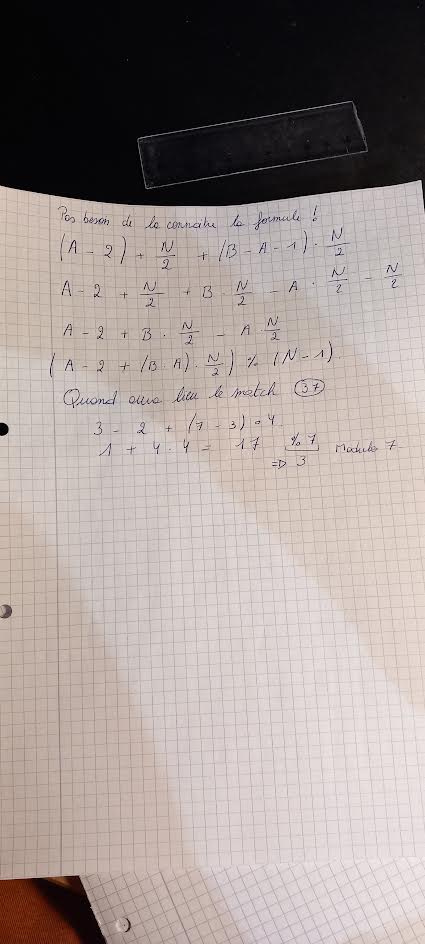 Pas besoin de la connaître la formule !
(A - 2) + N/2 + (B - A - 1) · N/2
A - 2 + N/2 + B · N/2 - A · N/2 - N/2
A - 2 + B · N/2 - A · N/2
(A - 2 + (B - A) · N/2) % (N - 1).
Quand aura lieu le match 37
3 - 2 + (7 - 3) · 4.
1 + 4 · 4 = 17 % 7 Modulo 7
=> 3